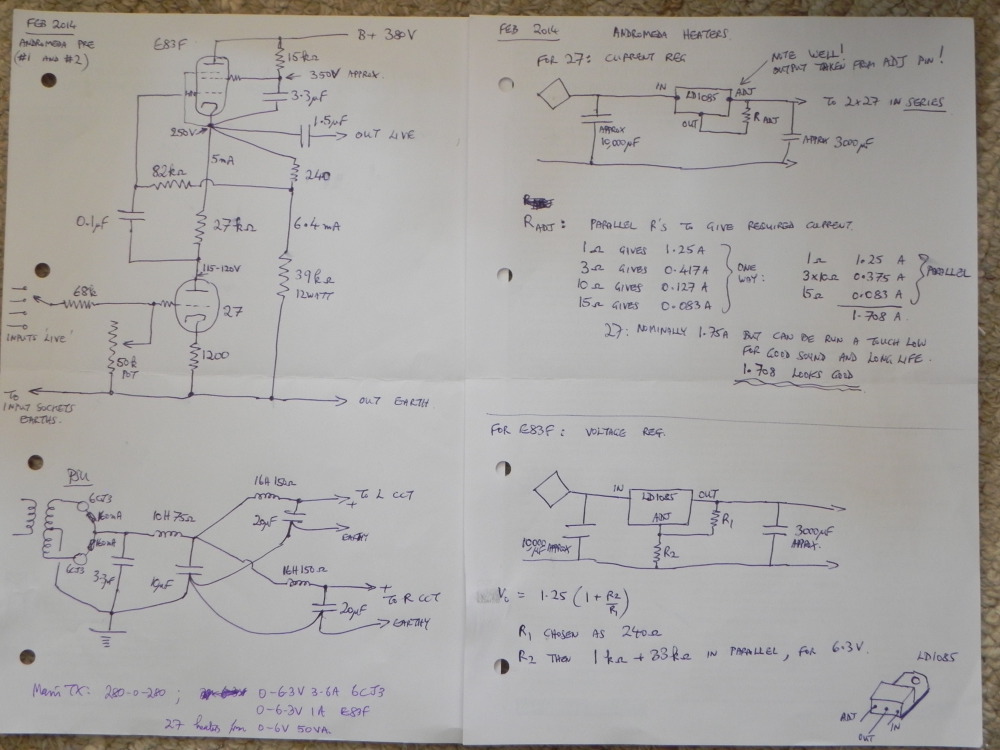 FEB 2014
ANDROMEDA PRE
(#1 AND #2)
E83F
B+ 380V
15kΩ
350V APPROX.
3.3µF
1.5µF
OUT LIVE
250V
5mA
240
82kΩ
0.1µF
27kΩ
6.4mA
39kΩ
12WATT
115-120V
68k
27
INPUTS 'LIVE'
50k
POT
1200
TO
INPUT SOCKETS
EARTHS.
OUT EARTH
PSU
6CJ3
160mA
160mA
6CJ3
10H 75Ω
3.3µF
10µF
16H 150Ω
+
TO L CCT
20µF
EARTHY
16H 150Ω
+
TO R CCT
20µF
EARTHY
Main TX: 280-0-280 ; 0-6.3V 3.6A 6CJ3
0-6.3V 1A E83F
27 heaters from 0-6V 50VA.
FEB 2014
ANDROMEDA HEATERS.
FOR 27: CURRENT REG
NOTE WELL!
OUTPUT TAKEN FROM ADJ PIN!
IN
LD1085
ADJ
OUT
R ADJ
TO 2x27 IN SERIES
APPROX
10,000µF
APPROX 3000µF
RADJ: PARALLEL R'S TO GIVE REQUIRED CURRENT.
1Ω GIVES 1.25A
3Ω GIVES 0.417A
10Ω GIVES 0.127A
15Ω GIVES 0.083A
ONE
WAY:
1Ω 1.25 A
3x10Ω 0.375 A
15Ω 0.083 A
1.708 A.
PARALLEL
27: NOMINALLY 1.75A BUT CAN BE RUN A TOUCH LOW
FOR GOOD SOUND AND LONG LIFE.
1.708 LOOKS GOOD
FOR E83F: VOLTAGE REG.
IN
LD1085
OUT
ADJ
R1
R2
10000
µF APPROX
3000µF
APPROX.
Vo = 1.25 (1 + R2/R1)
R1 CHOSEN AS 240Ω
R2 THEN 1kΩ + 33kΩ IN PARALLEL, FOR 6.3V.
LD1085
ADJ
OUT
IN